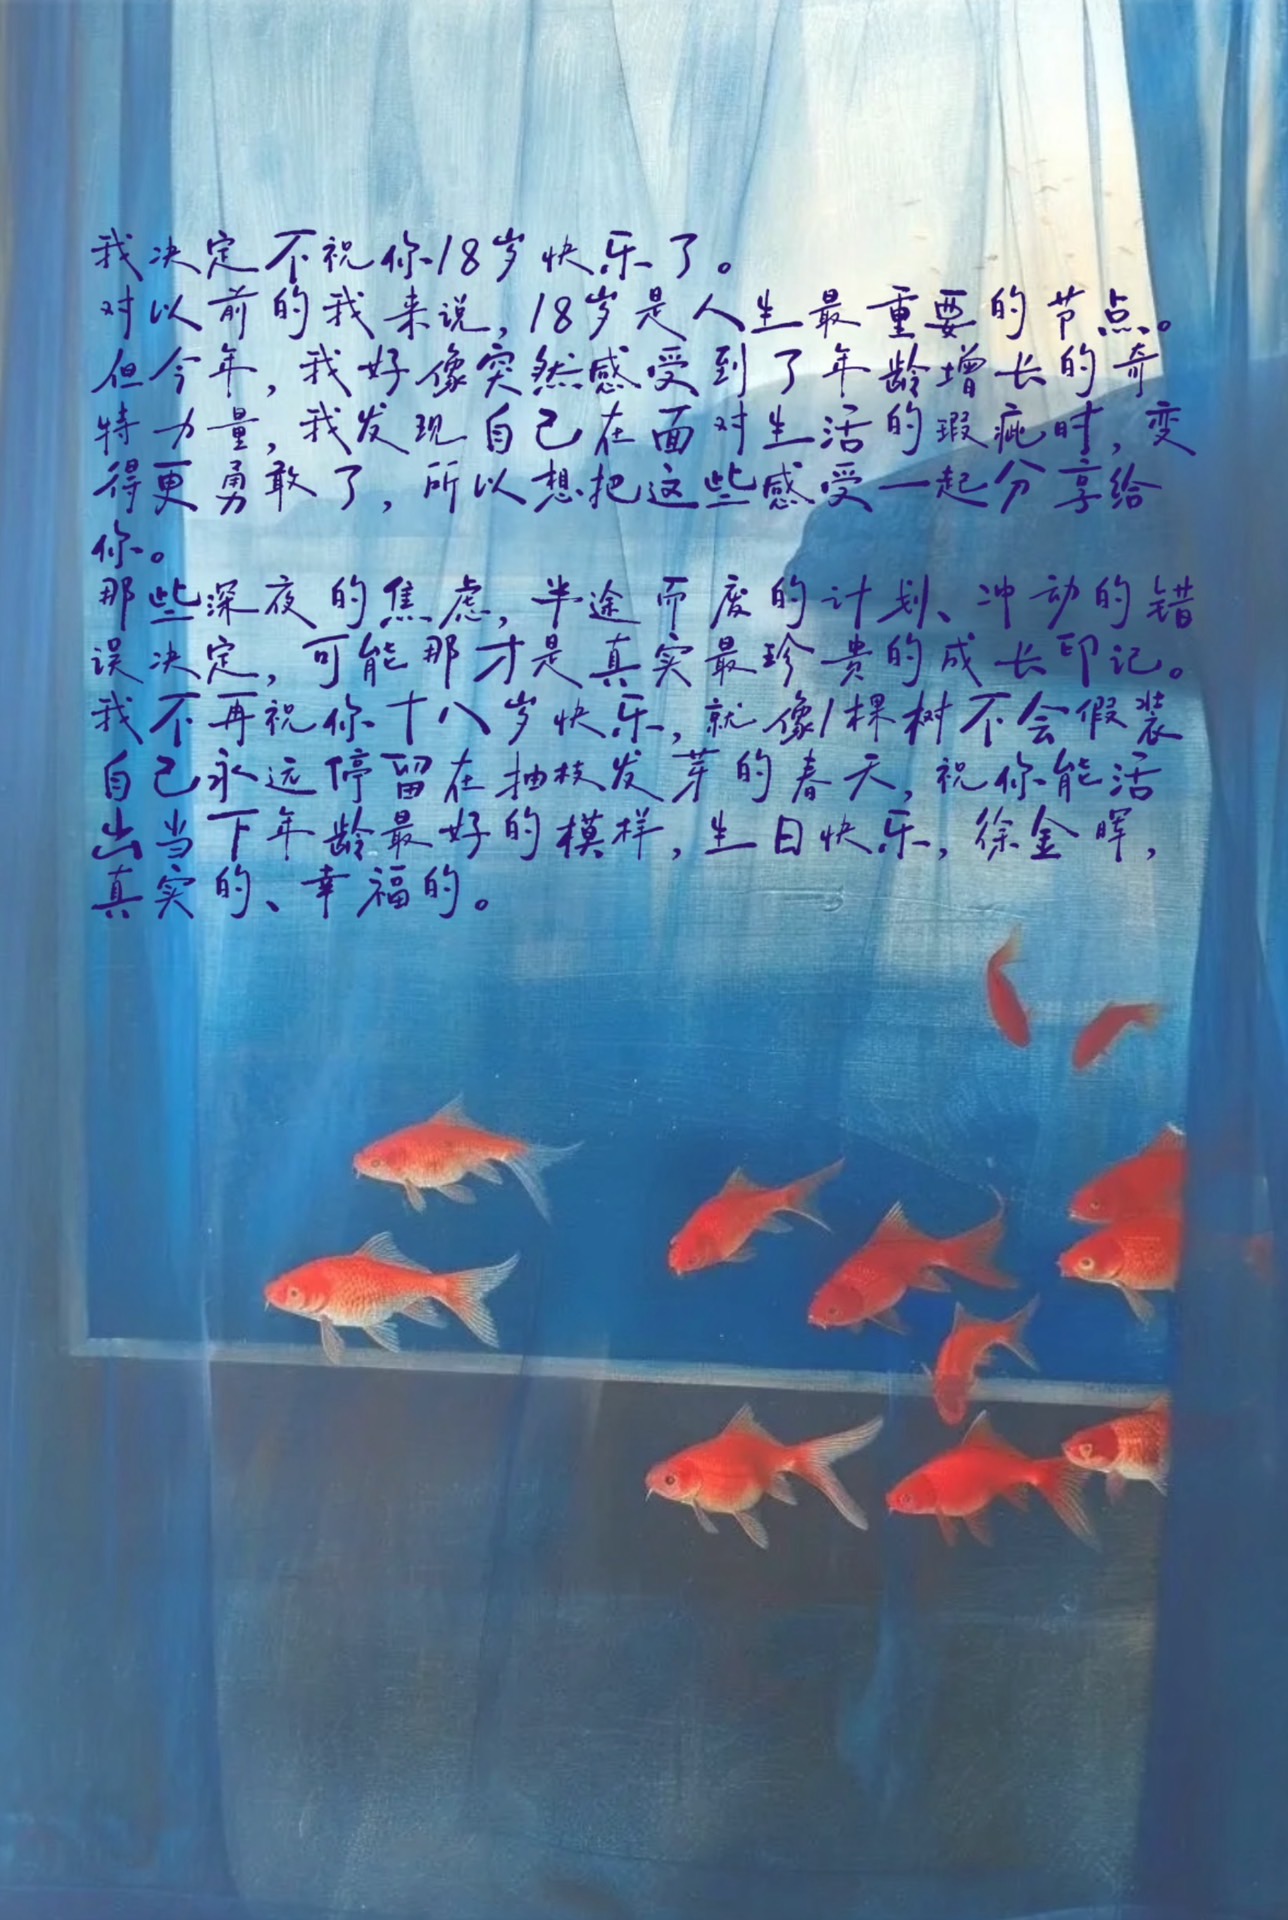 我决定不祝你18岁快乐了。
对以前的我来说，18岁是人生最重要的节点。
但今年，我好像突然感受到了年龄增长的奇
特力量，我发现自己在面对生活的瑕疵时，变
得更勇敢了，所以想把这些感受一起分享给
你。
那些深夜的焦虑，半途而废的计划、冲动的错
误决定，可能那才是真实最珍贵的成长印记。
我不再祝你十八岁快乐，就像1棵树不会假装
自己永远停留在抽枝发芽的春天，祝你能活
出当下年龄最好的模样，生日快乐，徐金晖，
真实的、幸福的。